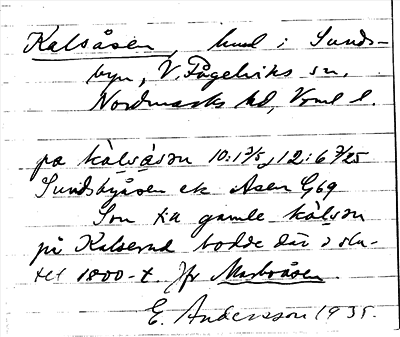 Kalsåsen, hmd i Sunds-
byn, V. Fågelviks sn,
Nordmarks hd, Vrml l.
pa kàlsåsən 10:1 3/5, 12:6 7/25
Sundsbyåsen ek Åsen G69
Son t.a gamle kàlsən
på Kalserud bodde där i slu-
tet 1800-t. Jfr Marboåsen.
E. Andersson 1935.